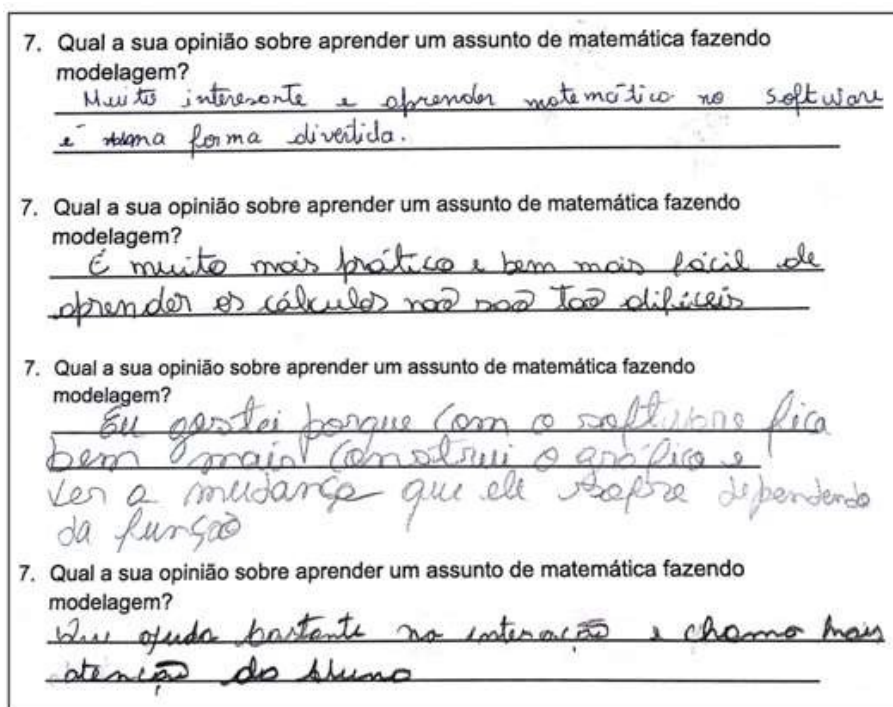 7. Qual a sua opinião sobre aprender um assunto de matemática fazendo
modelagem?
Muito interesante e aprender matemática no software
é uma forma divertida.
7. Qual a sua opinião sobre aprender um assunto de matemática fazendo
modelagem?
É muito mais prático e bem mais fácil de
aprender os cálculos não são tão difíceis
7. Qual a sua opinião sobre aprender um assunto de matemática fazendo
modelagem?
Eu gostei porque com o software fica
bem mais construi o gráfico e
ver a mudança que ele sofre dependendo
da função
7. Qual a sua opinião sobre aprender um assunto de matemática fazendo
modelagem?
ajuda bastante na interação e chama mais
atenção do aluno